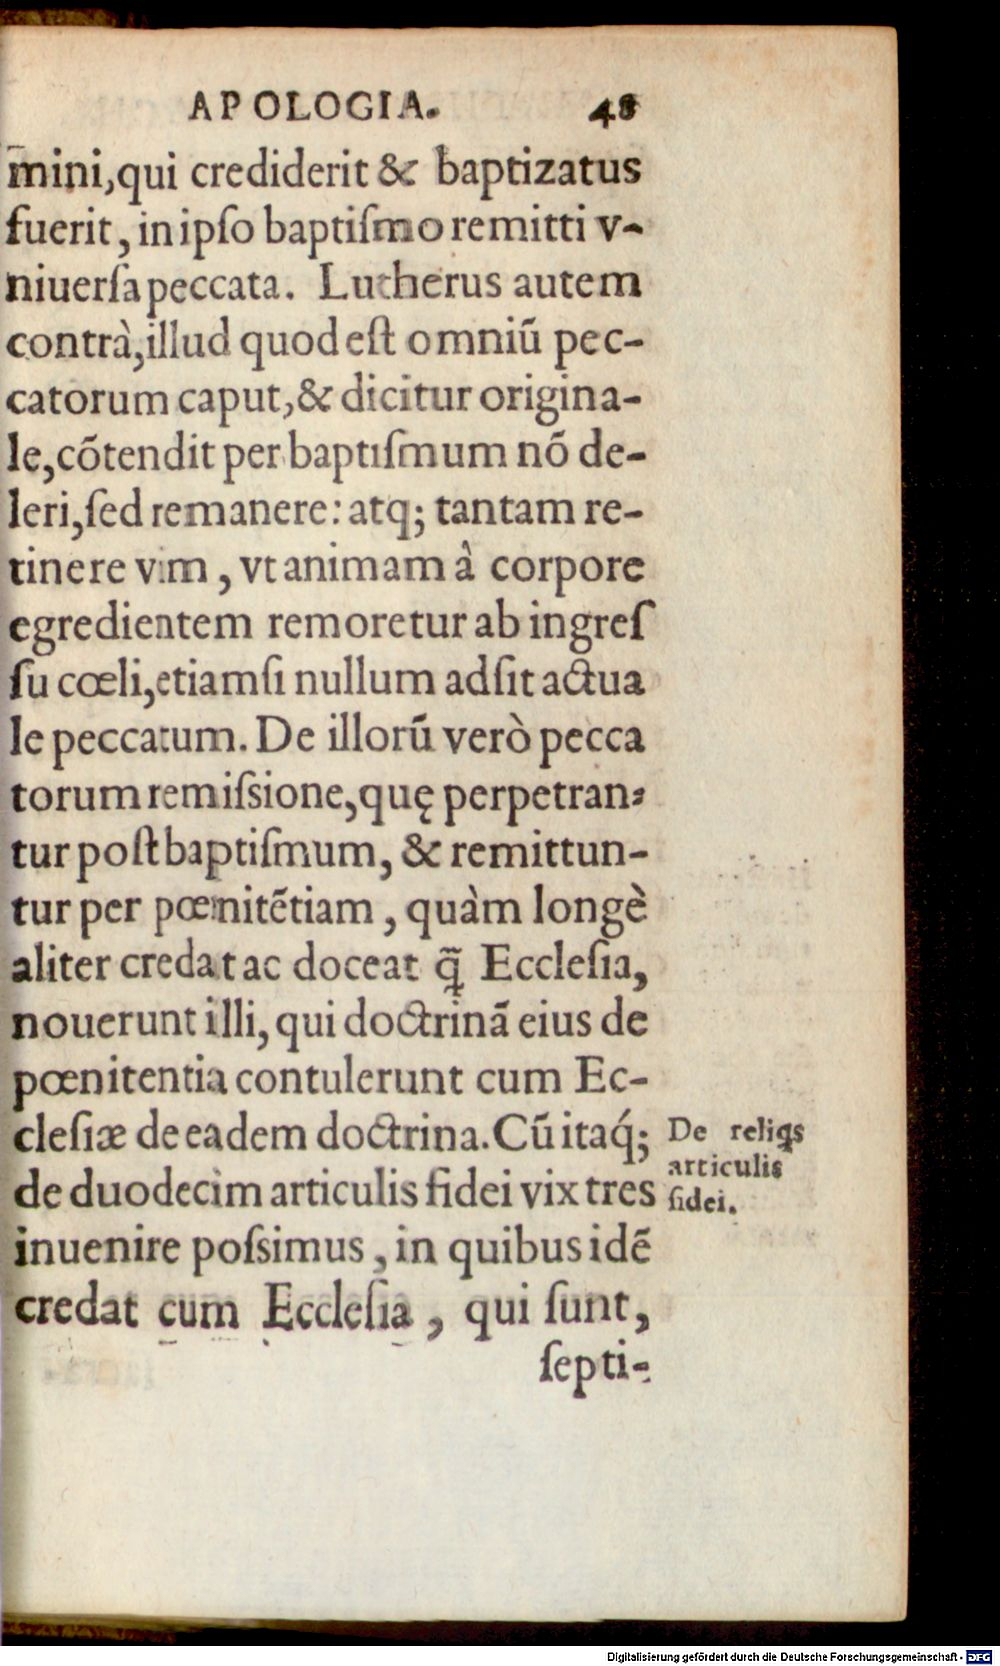 APOLOGIA. 48
mini, qui crediderit & baptizatus
fuerit, in ipſo baptiſmo remitti v-
niuerſa peccata. Lutherus autem
contrà, illud quod est omniũ pec-
catorum caput, & dicitur origina-
le, cõtendit per baptiſmum nõ de-
leri, ſed remanere: atq; tantam re-
tinere vim, vt animam à corpore
egredientem remoretur ab ingreſ
ſu cœli, etiamſi nullum adſit actua
le peccatum. De illorũ verò pecca
torum remiſsione, quę perpetran-
tur post baptiſmum, & remittun-
tur per pœnitẽtiam, quàm longè
aliter credat ac doceat q̃ Eccleſia,
nouerunt illi, qui doctrinã eius de
pœnitentia contulerunt cum Ec-
cleſiæ de eadem doctrina. Cũ itaq́;
de duodecim articulis fidei vix tres
inuenire poſsimus, in quibus idẽ
credat cum Eccleſia, qui ſunt,
ſepti-
De reliqs
articulis
fidei.
Digitalisierung gefördert durch die Deutsche Forschungsgemeinschaft - DFG